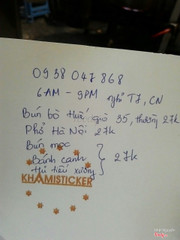 0938 047 868
6AM - 9PM nghỉ T7, CN
Bún bò Huế giò 35, thường 27k
Phở Hà Nội 27k
Bún mọc
Bánh canh
Hủ tiếu xương
27k
KHAMISTICKER